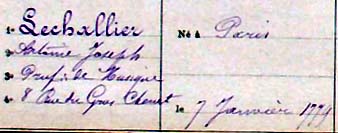 1- Lechallier Né à Paris
2- Antoine Joseph
3- Prof. de Musique
4- 8 Rue du Gros Chenet le 7 Janvier 1779